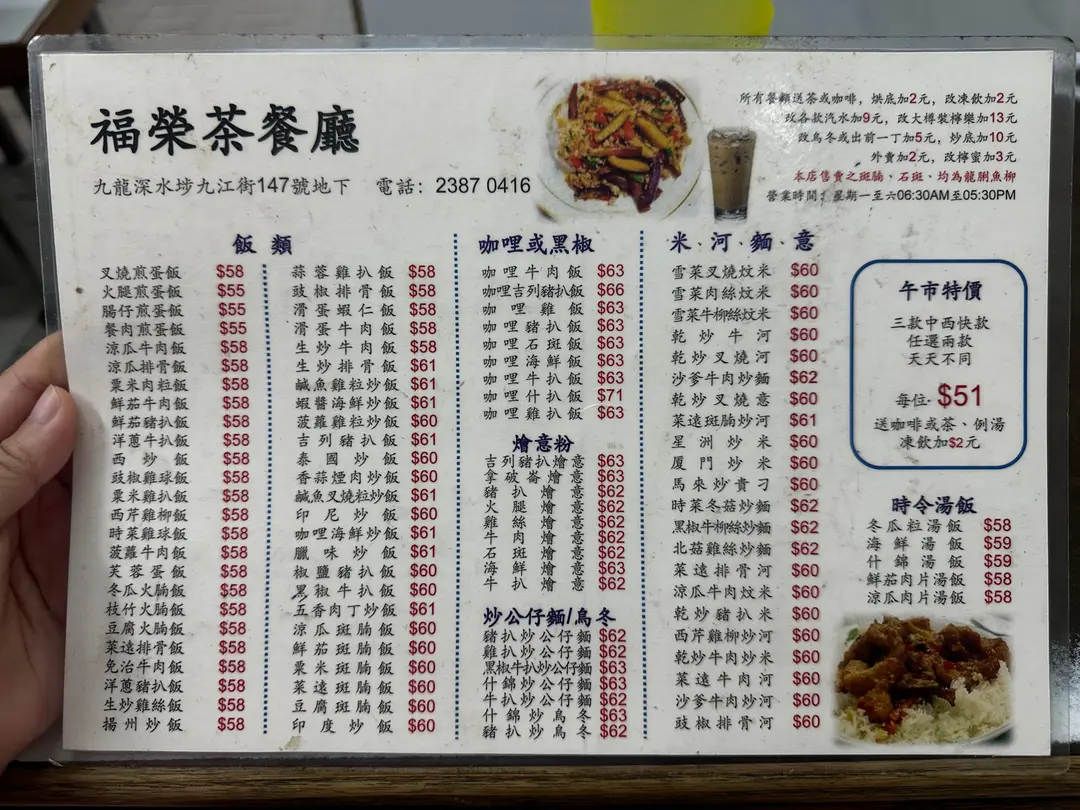 福榮茶餐廳
九龍深水埗九江街147號地下 電話：2387 0416
所有餐類送茶或咖啡，烘底加2元，改凍飲加2元
改各款汽水加9元，改大樽裝檸樂加13元
改烏冬或出前一丁加5元，炒底加10元
外賣加2元，改檸蜜加3元
本店售賣之斑腩、石斑、均為龍脷魚柳
營業時間：星期一至六06:30AM至05:30PM
飯類
叉燒煎蛋飯 $58
火腿煎蛋飯 $55
腸仔煎蛋飯 $55
餐肉煎蛋飯 $55
涼瓜牛肉飯 $58
涼瓜排骨飯 $58
粟米肉粒飯 $58
鮮茄牛肉飯 $58
鮮茄豬扒飯 $58
洋蔥牛扒飯 $58
西炒飯 $58
豉椒雞球飯 $58
粟米雞扒飯 $58
西芹雞柳飯 $58
時菜雞球飯 $58
菠蘿牛肉飯 $58
芙蓉蛋飯 $58
冬瓜火腩飯 $58
枝竹火腩飯 $58
豆腐火腩飯 $58
菜遠排骨飯 $58
免治牛肉飯 $58
洋蔥豬扒飯 $58
生炒雞絲飯 $58
揚州炒飯 $58
蒜蓉雞扒飯 $58
豉椒排骨飯 $58
滑蛋蝦仁飯 $58
滑蛋牛肉飯 $58
生炒牛肉飯 $58
生炒排骨飯 $61
鹹魚雞粒炒飯 $61
蝦醬海鮮炒飯 $61
菠蘿雞粒炒飯 $60
吉列豬扒飯 $61
泰國炒飯 $60
香蒜煙肉炒飯 $60
鹹魚叉燒粒炒飯 $61
印尼炒飯 $60
咖哩海鮮炒飯 $61
臘味炒飯 $61
椒鹽豬扒飯 $60
黑椒牛扒飯 $60
五香肉丁炒飯 $61
涼瓜斑腩飯 $60
鮮茄斑腩飯 $60
粟米斑腩飯 $60
菜遠斑腩飯 $60
豆腐斑腩飯 $60
印度炒飯 $60
咖哩或黑椒
咖哩牛肉飯 $63
咖哩吉列豬扒飯 $66
咖哩雞飯 $63
咖哩豬扒飯 $63
咖哩石斑飯 $63
咖哩海鮮飯 $63
咖哩牛扒飯 $63
咖哩什扒飯 $71
咖哩雞扒飯 $63
燴意粉
吉列豬扒燴意 $63
拿破崙燴意 $63
豬扒燴意 $62
火腿燴意 $62
雞絲燴意 $62
牛肉燴意 $62
石斑燴意 $62
海鮮燴意 $63
牛扒燴意 $62
炒公仔麵/烏冬
豬扒炒公仔麵 $62
雞扒炒公仔麵 $62
黑椒牛扒炒公仔麵 $63
什錦炒公仔麵 $63
牛扒炒公仔麵 $62
什錦炒烏冬 $63
豬扒炒烏冬 $62
米、河、麵、意
雪菜叉燒炆米 $60
雪菜肉絲炆米 $60
雪菜牛柳絲炆米 $60
乾炒牛河 $60
乾炒叉燒河 $60
沙爹牛肉炒麵 $62
乾炒叉燒意 $60
菜遠斑腩炒河 $61
星洲炒米 $60
廈門炒米 $60
馬來炒貴刁 $60
時菜冬菇炒麵 $62
黑椒牛柳絲炒麵 $62
北菇雞絲炒麵 $62
菜遠排骨河 $60
涼瓜牛肉炆米 $60
乾炒豬扒米 $60
西芹雞柳炒河 $60
乾炒牛肉炒米 $60
菜遠牛肉河 $60
沙爹牛肉炒河 $60
豉椒排骨河 $60
午市特價
三款中西快款
任選兩款
天天不同
每位 $51
送咖啡或茶、例湯
凍飲加$2元
時令湯飯
冬瓜粒湯飯 $58
海鮮湯飯 $59
什錦湯飯 $59
鮮茄肉片湯飯 $58
涼瓜肉片湯飯 $58